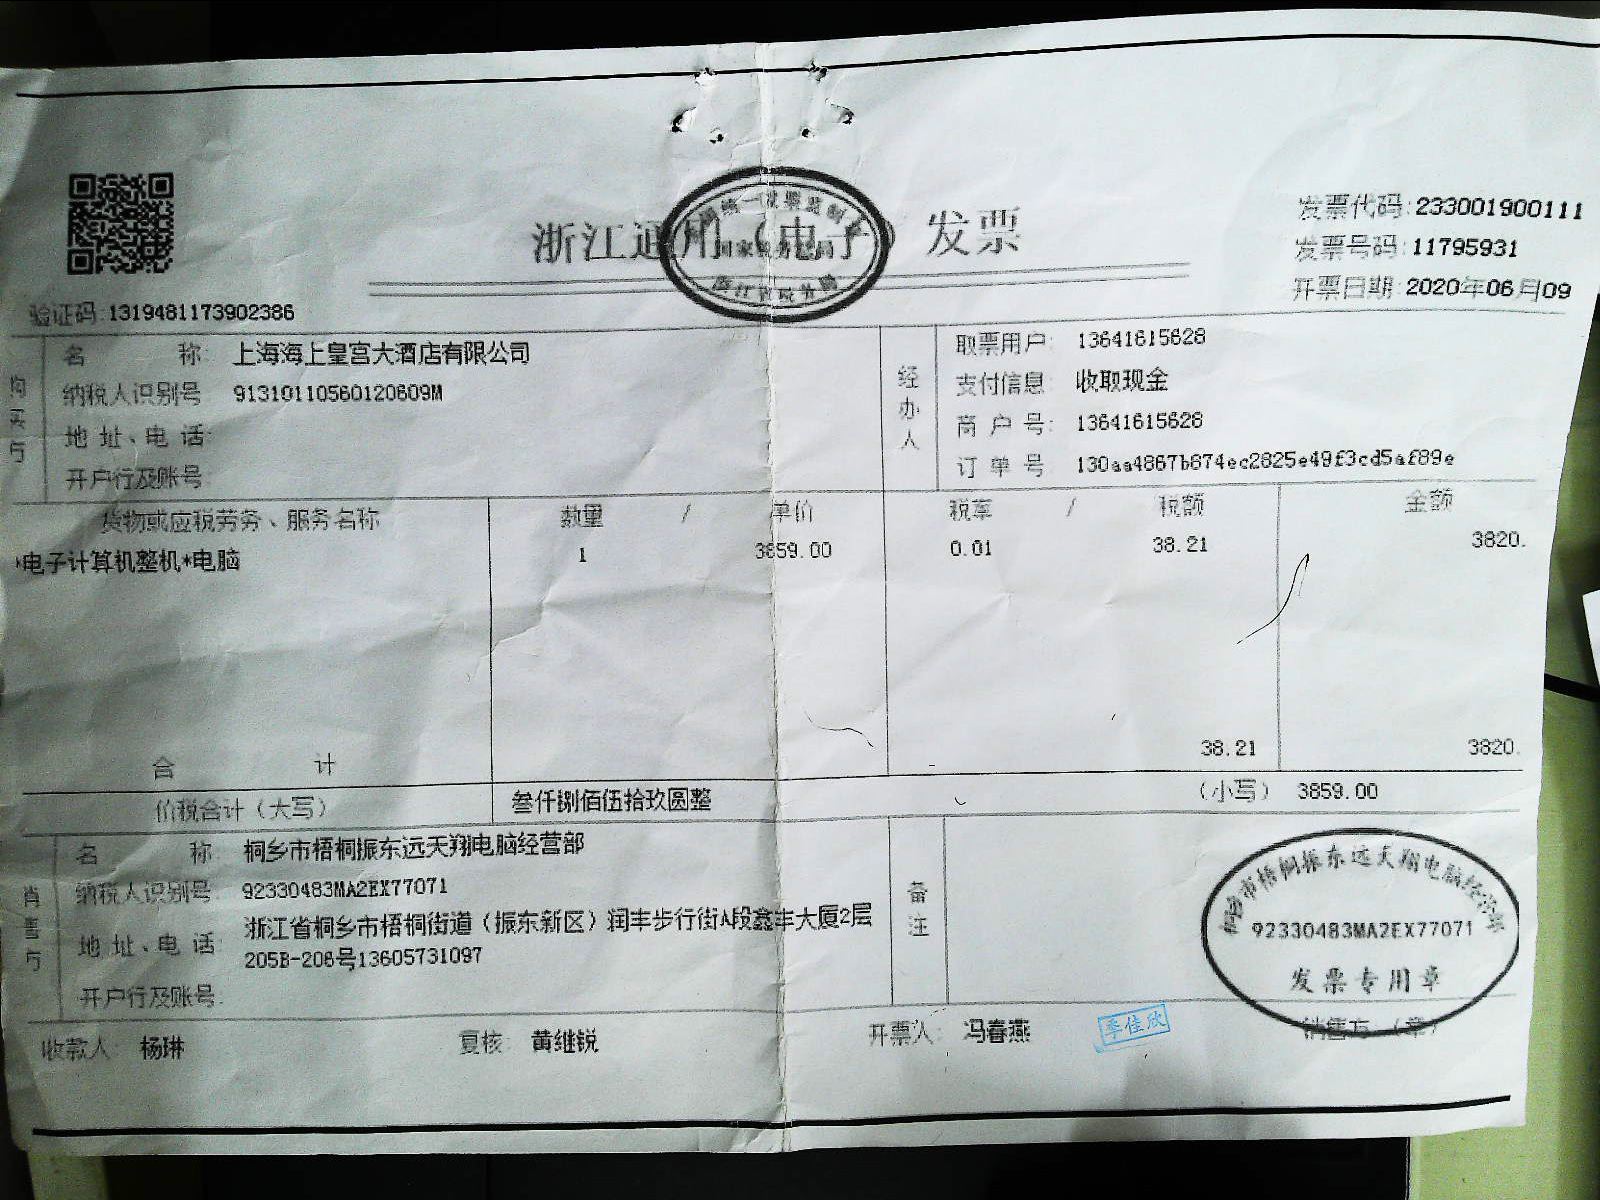 浙江通用（电子）发票
国家税务总局
发票代码:233001900111
发票号码:11795931
开票日期:2020年06月09
验证码:1319481173902386
名 称: 上海海上皇宫大酒店有限公司
纳税人识别号 91310110560120609M
地 址、电 话:
开户行及账号
经办人
取票用户: 13641615628
支付信息: 收取现金
商 户 号: 13641615628
订 单 号 130aa4867b874ec2825e49f3cd5af89e
货物或应税劳务、服务名称 数量 / 单价 税率 / 税额 金额
*电子计算机整机*电脑 1 3859.00 0.01 38.21 3820.
合 计 38.21 3820.
价税合计（大写） 叁仟捌佰伍拾玖圆整 （小写） 3859.00
名 称 桐乡市梧桐振东远天翔电脑经营部
纳税人识别号 92330483MA2EX77071
地 址、电 话 浙江省桐乡市梧桐街道（振东新区）润丰步行街A段鑫丰大厦2层
205B-206号13605731097
开户行及账号
备注
桐乡市梧桐振东远天翔电脑经营部
92330483MA2EX77071
发票专用章
收款人 杨琳 复核: 黄继锐 开票人: 冯春燕 李佳欣 销售方（章）